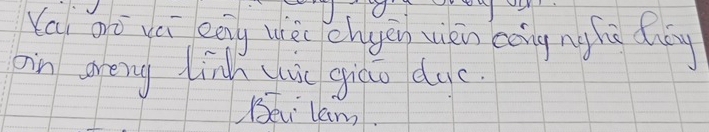 Vai trò và công việc chuyên viên công nghệ thông
tin trong lĩnh vực giáo dục.
Bài làm.